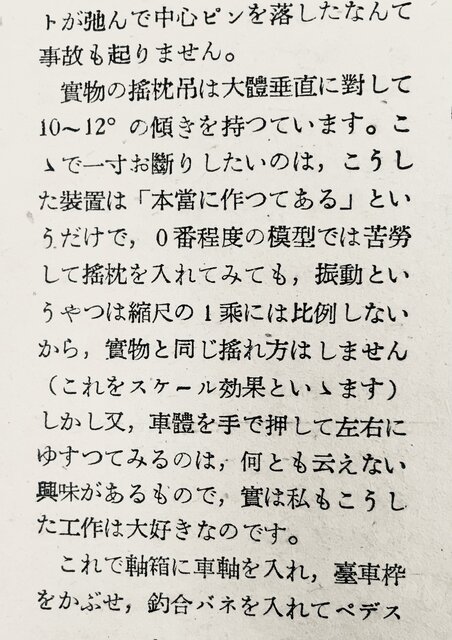 トが弛んで中心ピンを落したなんて
事故も起りません。
實物の搖枕吊は大體垂直に對して
10〜12°の傾きを持つています。こ
ゝで一寸お斷りしたいのは，こうし
た裝置は「本當に作つてある」とい
うだけで，0番程度の模型では苦勞
して搖枕を入れてみても，振動とい
うやつは縮尺の1乘には比例しない
から，實物と同じ搖れ方はしません
（これをスケール効果といゝます）
しかし又，車體を手で押して左右に
ゆすつてみるのは，何とも云えない
興味があるもので，實は私もこうし
た工作は大好きなのです。
これで軸箱に車軸を入れ，臺車枠
をかぶせ，釣合バネを入れてペデス